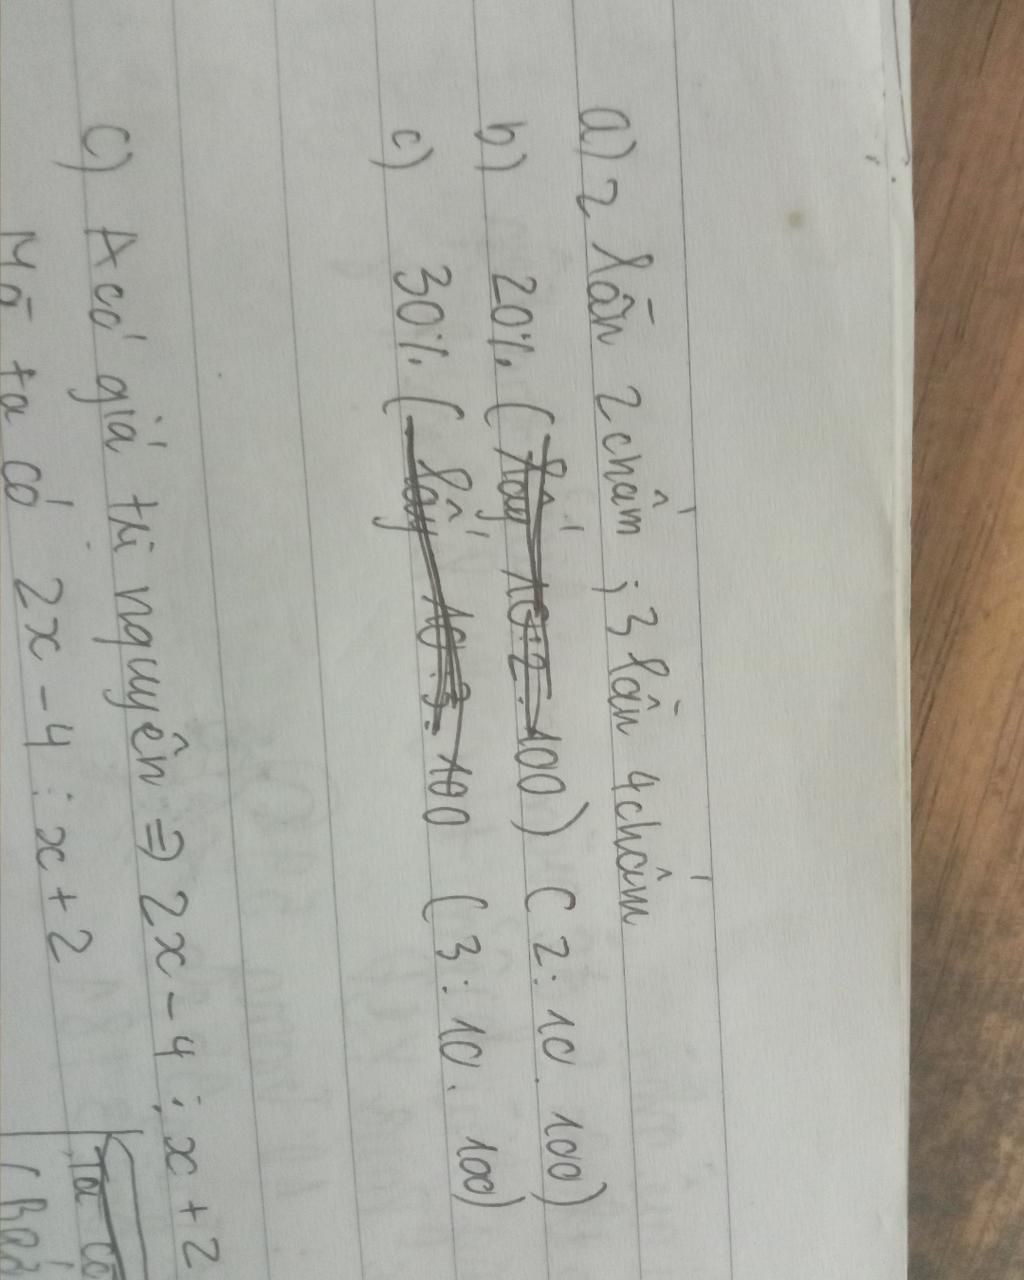 a) 2 lần 2 chấm ; 3 lần 4 chấm
b) 20% ( lấy 10 : 2 . 100) ( 2 : 10 . 100)
c) 30% ( lấy 10 . 3 . 100 ( 3 : 10 . 100)
c) A có giá trị nguyên => 2x - 4 ⋮ x + 2
Mà ta có 2x - 4 ⋮ x + 2
Ta có